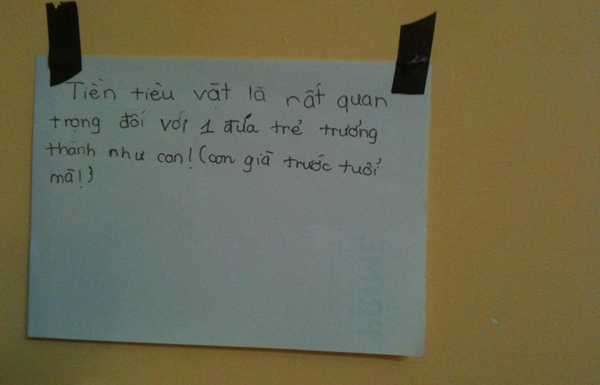 Tiền tiêu vặt là rất quan
trọng đối với 1 đứa trẻ trưởng
thành như con! (con già trước tuổi
mà!)
PRIME